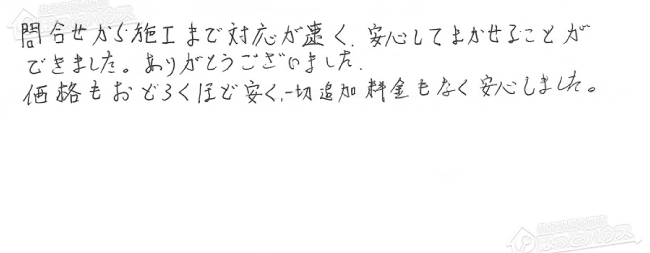 問合せから施工まで対応が速く、安心してまかせることが
できました。ありがとうございました.
価格もおどろくほど安く、一切追加料金もなく安心しました。